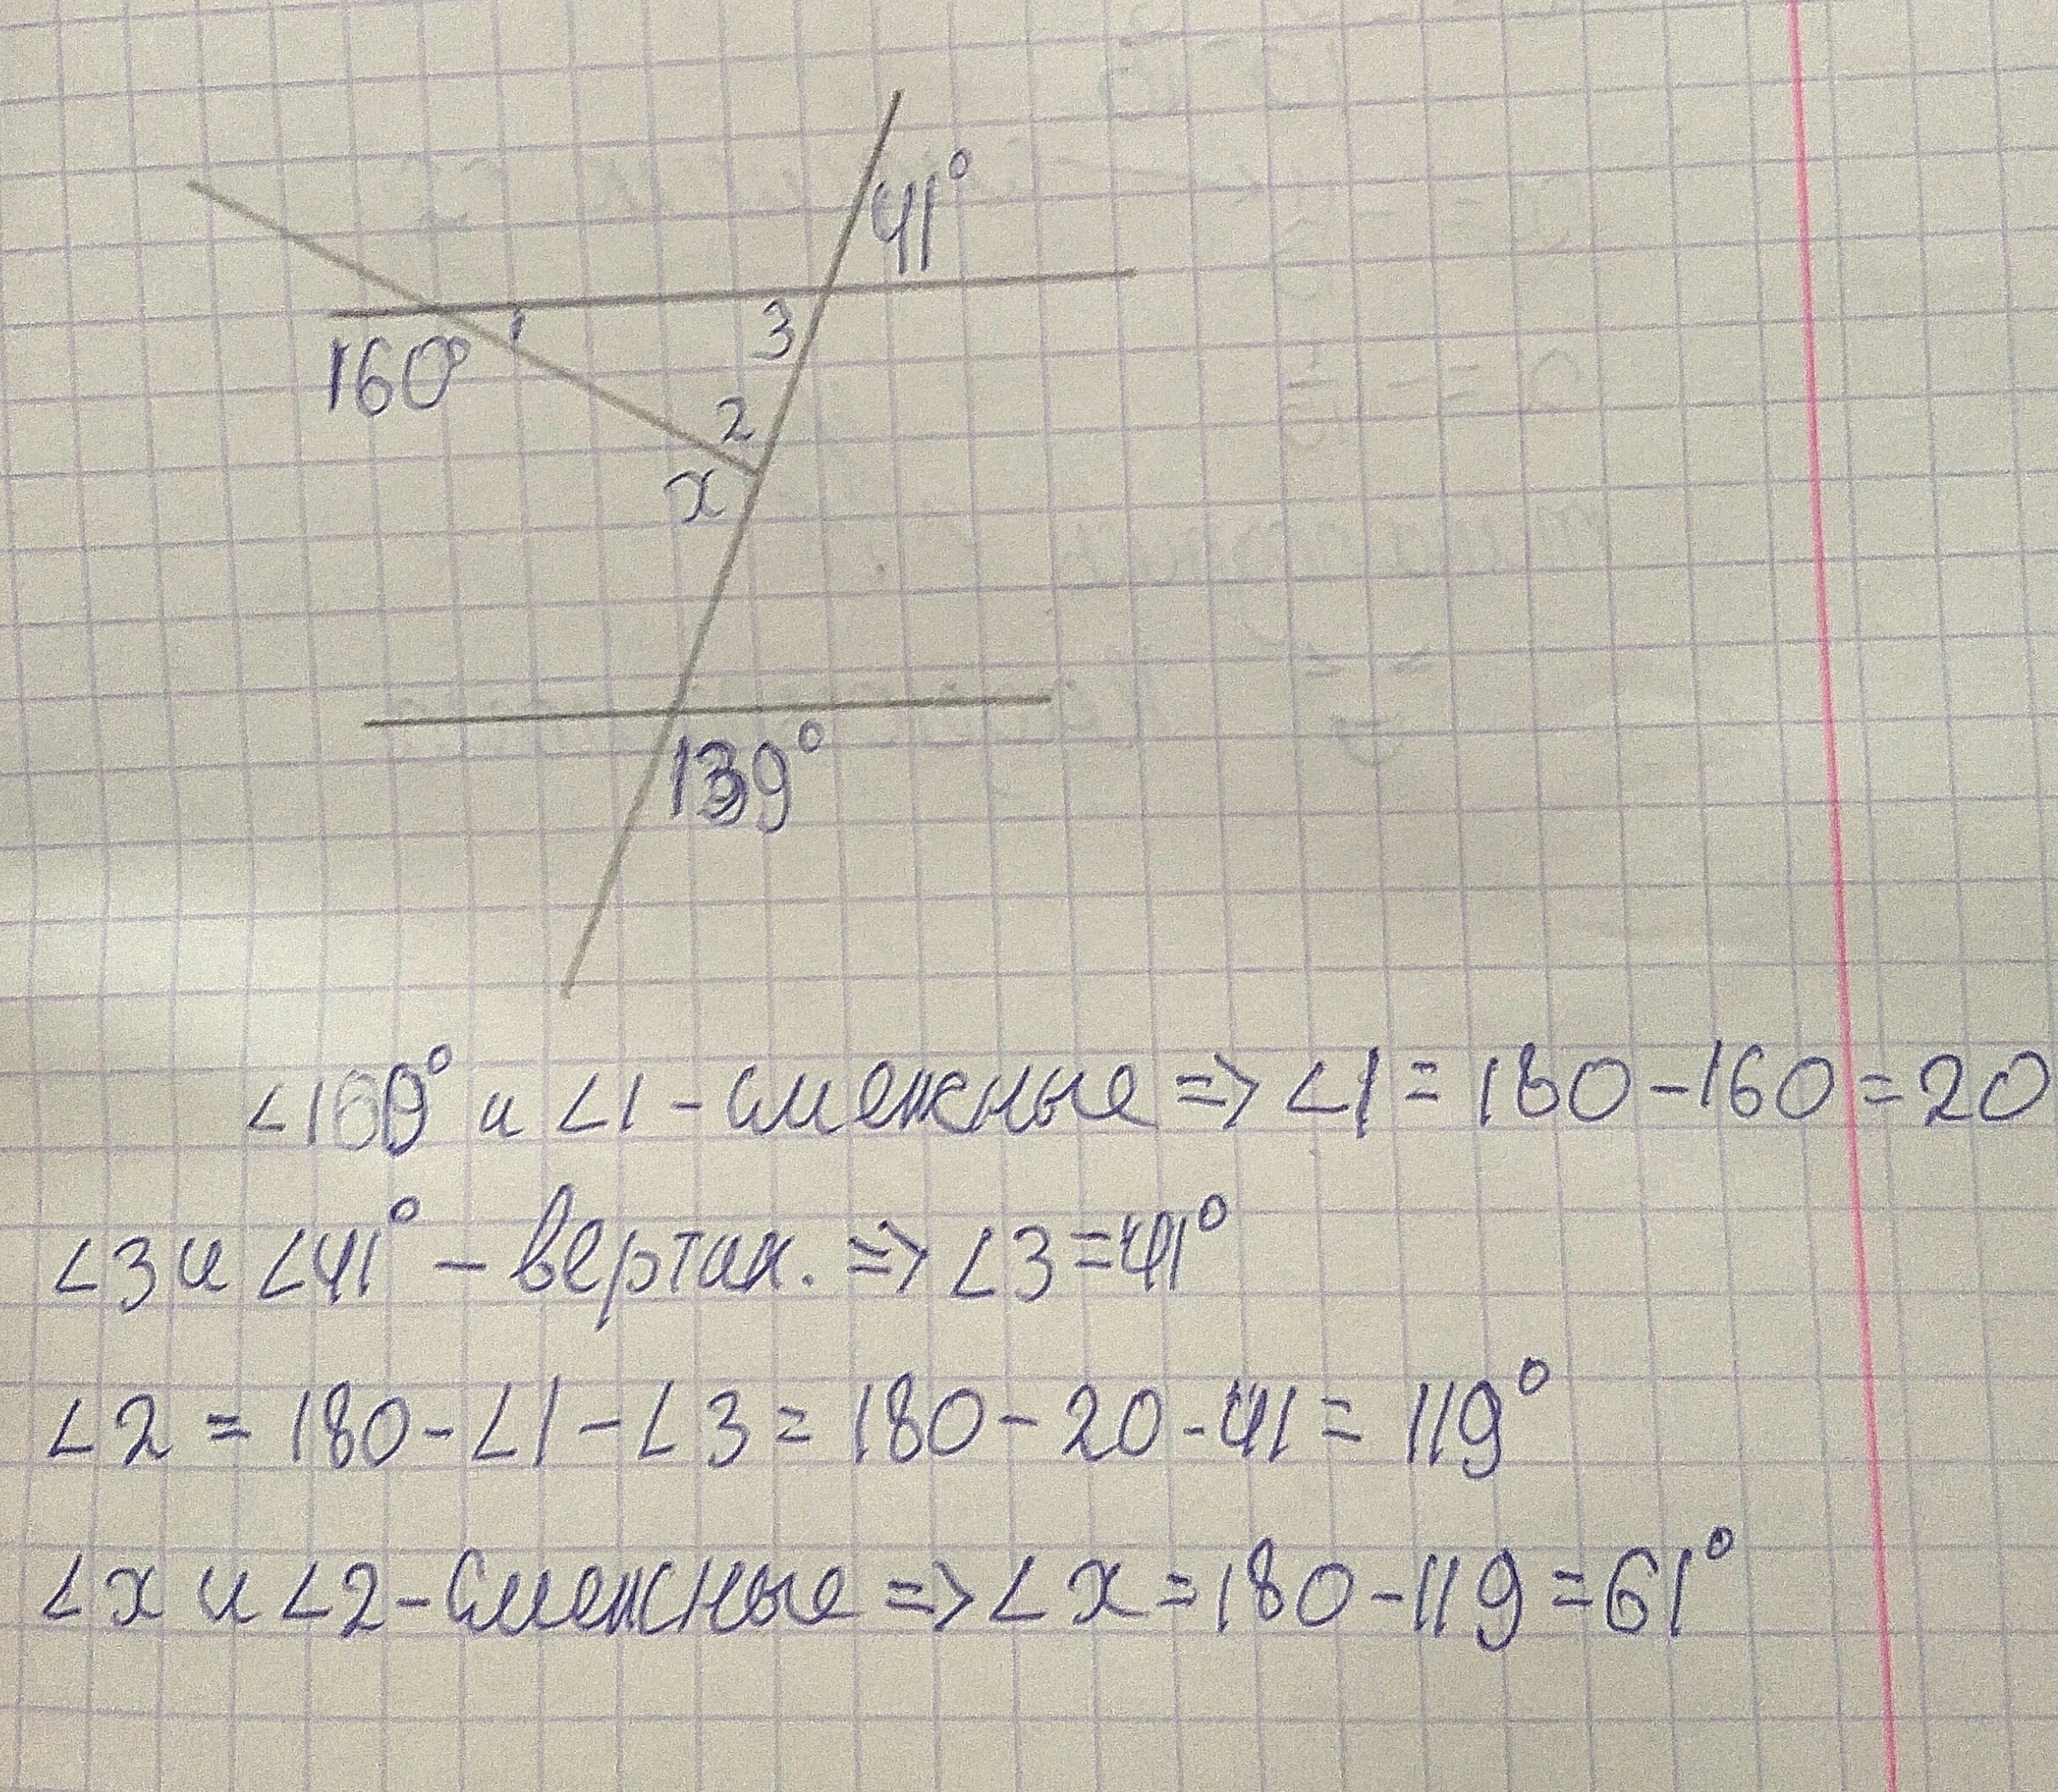 41°
160° 1 3
2
x
139°
∠160° и ∠1 - смежные => ∠1 = 180 - 160 = 20
∠3 и ∠41° - вертик. => ∠3 = 41°
∠2 = 180 - ∠1 - ∠3 = 180 - 20 - 41 = 119°
∠x и ∠2 - смежные => ∠x = 180 - 119 = 61°